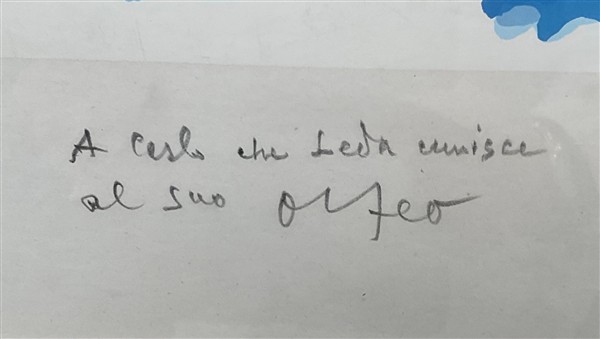 A Carlo che Leda unisce
al suo Orfeo